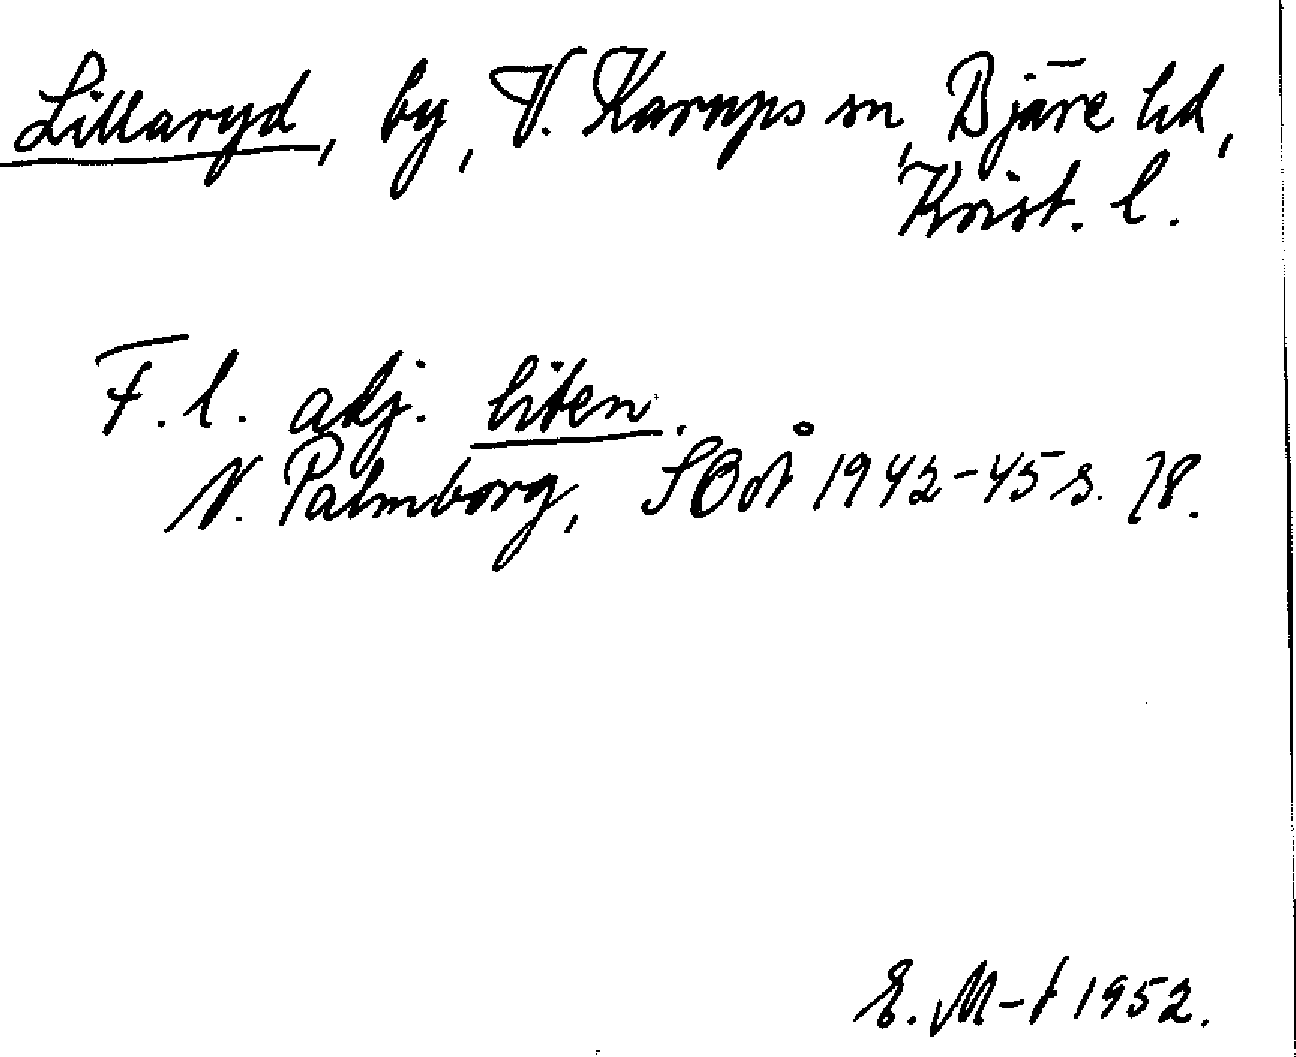 Lillaryd, by, V. Karups sn, Bjäre hd,
Krist. l.
F. l. adj. liten.
N. Palmborg, SOÅ 1942-45 s. 78.
E. M-t 1952.